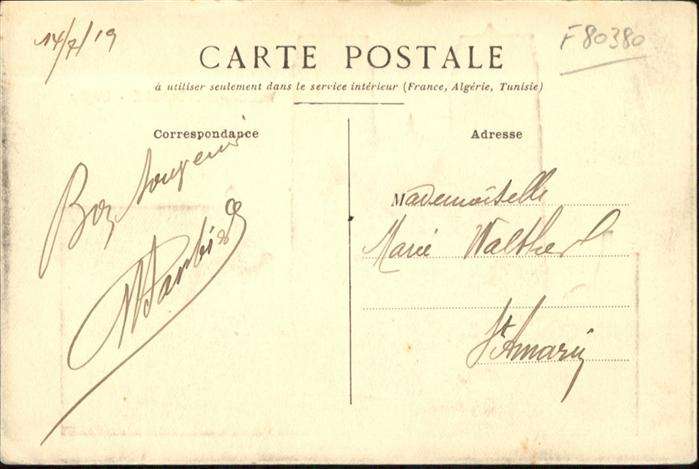 14/7/19
F80380
CARTE POSTALE
à utiliser seulement dans le service intérieur (France, Algérie, Tunisie)
Correspondance
Adresse
Bon Souvenir
Mademoiselle
Marie Walther
St Amarin